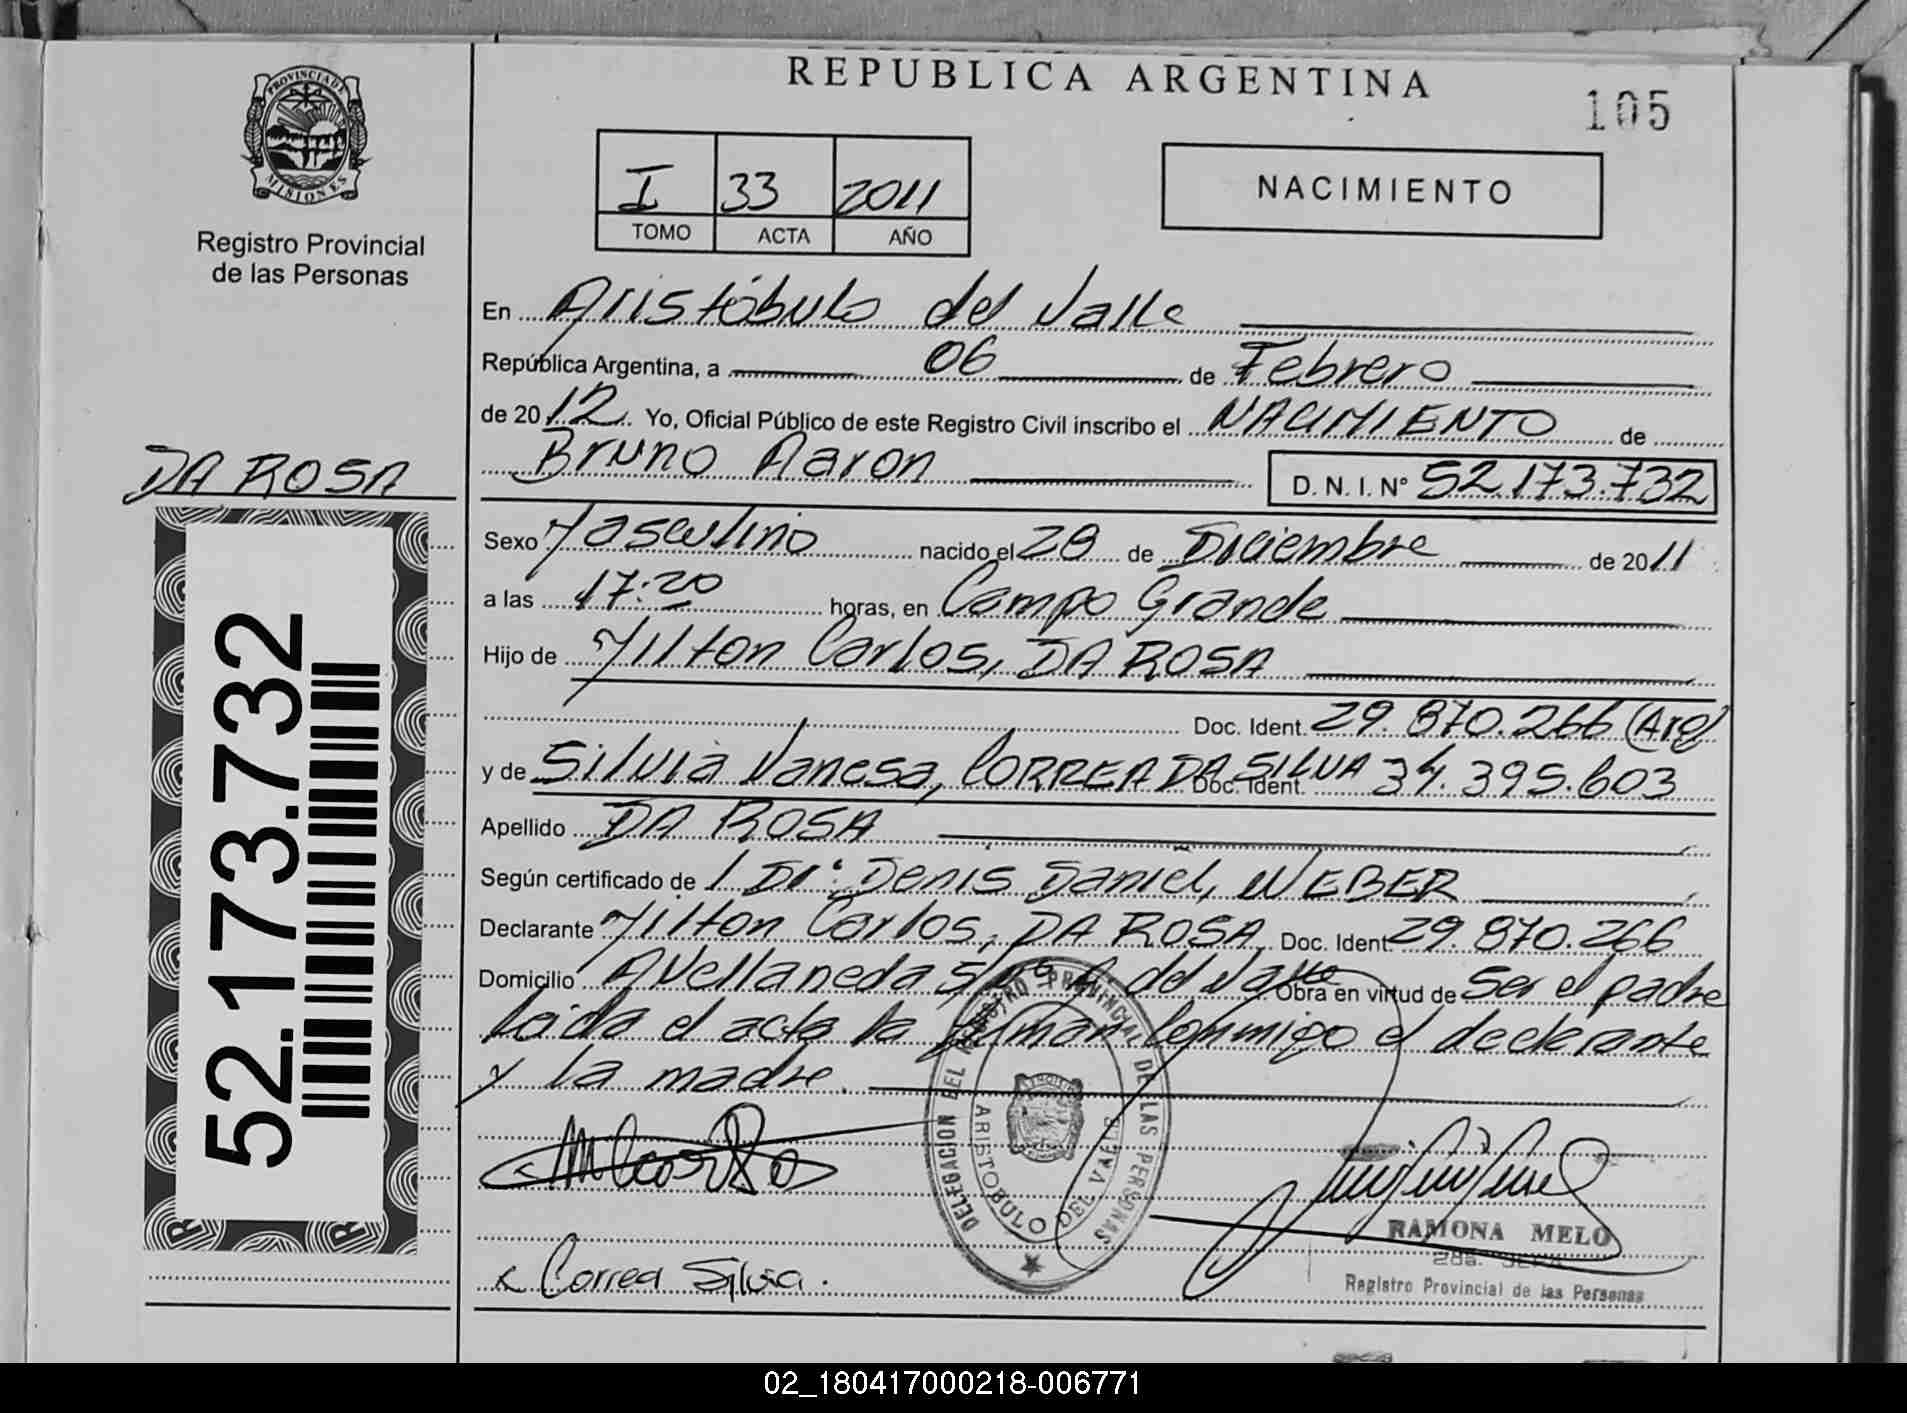 REPUBLICA ARGENTINA
105
PROVINCIA DE
MISIONES
Registro Provincial
de las Personas
I 33 2011
TOMO ACTA AÑO
NACIMIENTO
En Aristóbulo del Valle
República Argentina, a 06 de Febrero
de 2012 Yo, Oficial Público de este Registro Civil inscribo el NACIMIENTO de
Bruno Aaron D. N. I. Nº 52.173.732
DA ROSA
Sexo Masculino nacido el 28 de Diciembre de 2011
a las 17:20 horas, en Campo Grande
Hijo de Milton Carlos, DA ROSA
Doc. Ident. 29.870.266 (Arg)
y de Silvia Vanesa, CORREA DA SILVA Doc. Ident. 34.395.603
Apellido DA ROSA
Según certificado de 1 Dr. Denis Daniel, WEBER
Declarante Milton Carlos, DA ROSA Doc. Ident. 29.870.266
Domicilio Avellaneda S/nº A. del Valle Obra en virtud de Ser el padre
Leida el acta la firman Conmigo el declarante
y la madre.
52.173.732
DELEGACION DEL REGISTRO PROVINCIAL DE LAS PERSONAS
ARISTOBULO DEL VALLE
RAMONA MELO
Registro Provincial de las Personas
x Correa Silvia.
02_180417000218-006771